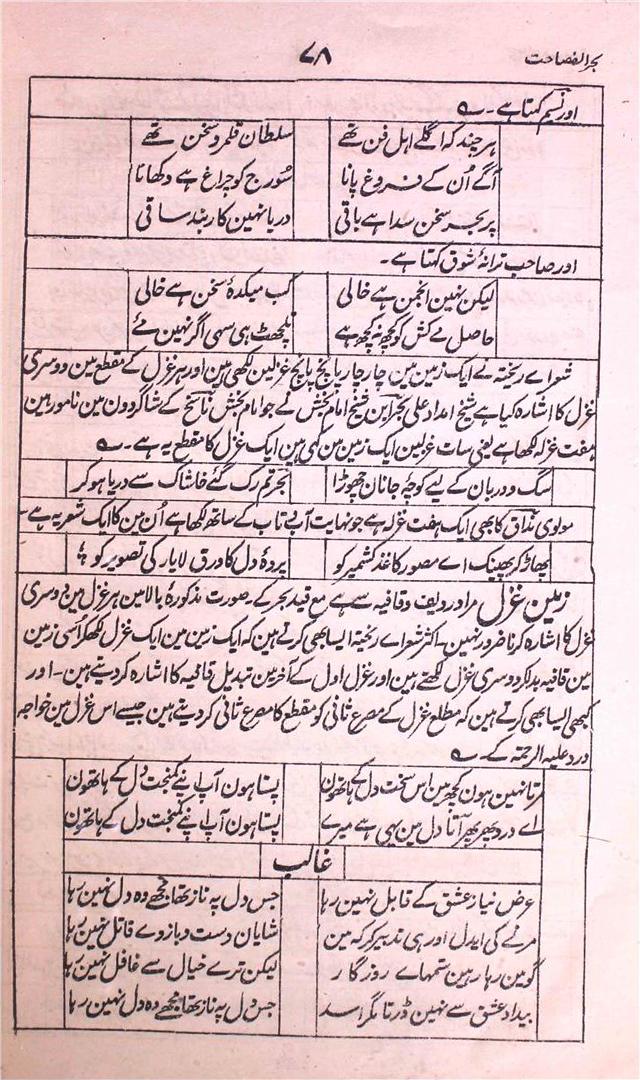 بحر الفصاحت
۷۸
اور نسیم کہتا ہے ؎
ہر چند کہ اگلے اہل فن تھے سلطان قلمرو سخن تھے
آگے اُن کے فروغ پانا سُورج کو چراغ ہے دکھانا
پر بحر سخن سدا ہے باقی دریا نہین کار بند ساقی
اور صاحب ترانۂ شوق کہتا ہے ۔
لیکن نہین انجمن ہے خالی کب میکدۂ سخن ہے خالی
حاصل مے کش کو کچھ نہ کچھ ہے تلچھٹ ہی سہی اگر نہین مے
شعراے ریختہ نے ایک زمین مین چار چار پانچ پانچ غزلین لکھی ہین اور ہر غزل کے مقطع مین دوسری
غزل کا اشارہ کیا ہے شیخ امداد علی بحر ابن شیخ امام بخش نے جو امام بخش ناسخ کے شاگردون مین نامور ہین
ہفت غزلہ لکھا ہے یعنی سات غزلین ایک زمین مین کہی ہین ایک غزل کا مقطع یہ ہے ۔ ؎
سگ و دربان کے لیے کوچہ جانان چھوڑا بحر تم رک گئے خاشاک سے دریا ہو کر
مولوی مذاق کا بھی ایک ہفت غزلہ ہے جو نہایت آب و تاب کے ساتھ لکھا ہے اُن مین کا ایک شعر یہ ہے ؎
پھاڑ کر پھینک اے مصور کاغذ کشمیر کو پردۂ دل کا ورق لا یار کی تصویر کو
زمین غزل مراد ردیف و قافیہ سے ہے مع قید بحر کے ۔ صورت مذکورۂ بالا مین ہر غزل مین دوسری
غزل کا اشارہ کرنا ضرور نہین ۔ اکثر شعراے ریختہ ایسا بھی کرتے ہین کہ ایک زمین مین ایک غزل لکھکر اُسی زمین
مین قافیہ بدلکر دوسری غزل لکھتے ہین اور غزل اول کے آخر مین تبدیل قافیہ کا اشارہ کر دیتے ہین ۔ اور
کبھی ایسا بھی کرتے ہین کہ مطلع غزل کے مصرع ثانی کو مقطع کا مصرع ثانی کر دیتے ہین جیسے اس غزل مین خواجہ
درد علیہ الرحمۃ کے ۔ ؎
مرتا نہین ہون کچھ مین اس سخت دل کے ہاتھون پستا ہون آپ اپنے کمبخت دل کے ہاتھون
اے درد پھر پھر آتا دل مین یہی ہے میرے پستا ہون آپ اپنے کمبخت دل کے ہاتھون
غالب
عرض نیاز عشق کے قابل نہین رہا جس دل پہ ناز تھا مجھے وہ دل نہین رہا
مرنے کی ایدل اور ہی تدبیر کر کہ مین شایان دست و بازوے قاتل نہین رہا
گو مین رہا رہین ستمہاے روزگار لیکن ترے خیال سے غافل نہین رہا
بیداد عشق سے نہین ڈرتا مگر اسد جس دل پہ ناز تھا مجھے وہ دل نہین رہا